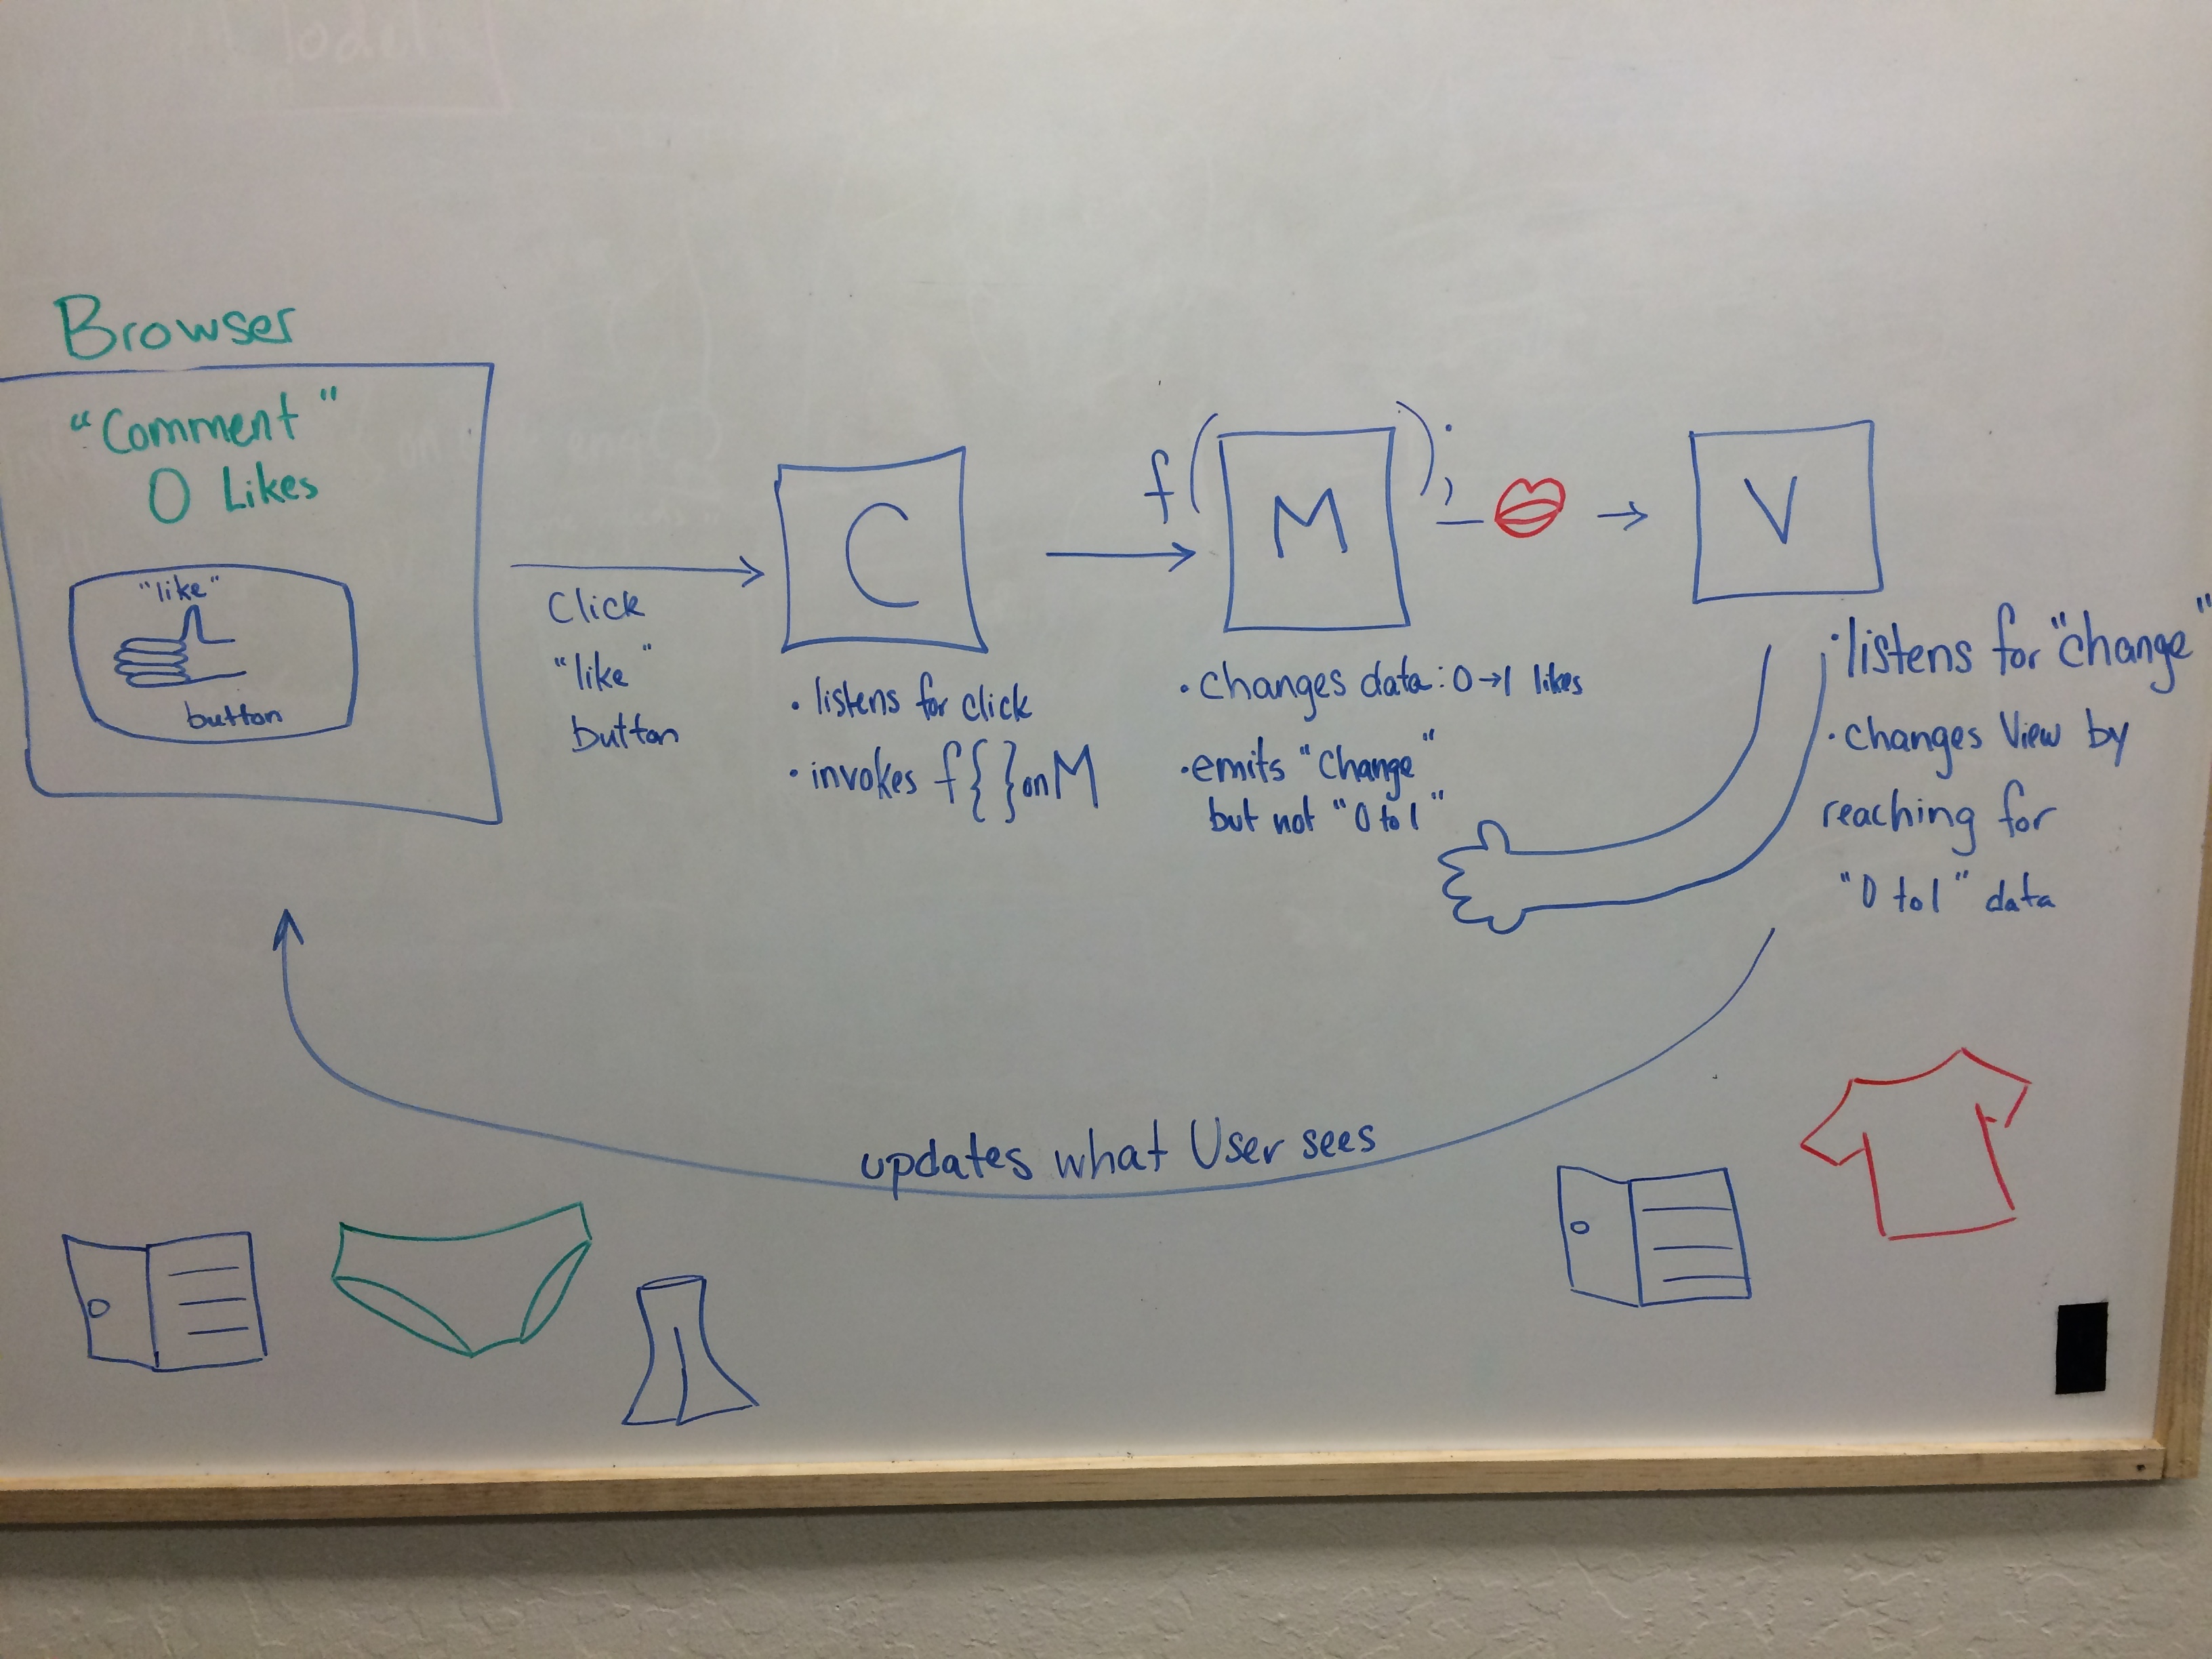 Browser
"Comment"
0 Likes
"like"
button
Click
"like"
button
C
• listens for click
• invokes f{ } on M
f( M );
• changes data: 0→1 likes
• emits "Change"
but not "0 to 1"
V
• listens for "change"
• changes View by
reaching for
"0 to 1" data
updates what User sees